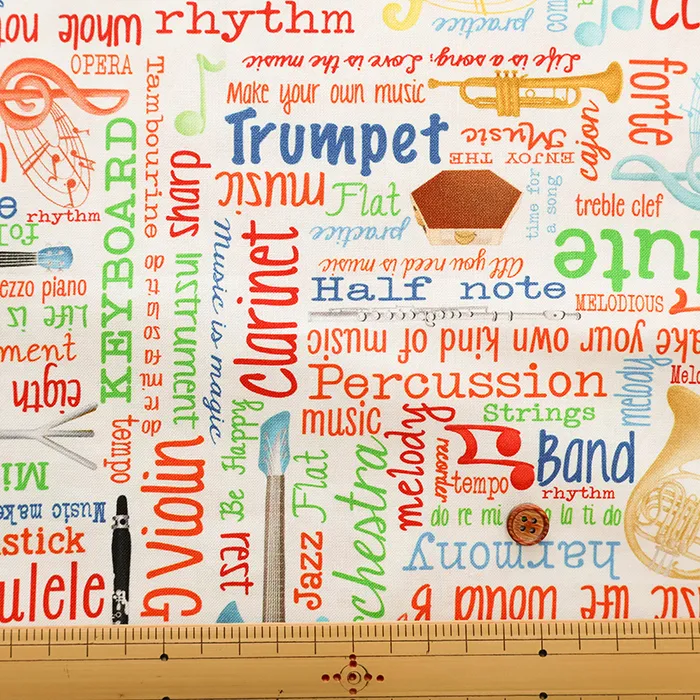 whole note
rhythm
practice
OPERA
Tambourine
Life is a song; Love is the music
Make your own music
forte
Trumpet
Music
ENJOY THE
cajon
KEYBOARD
sharp
music
Flat
time for
a song
treble clef
rhythm
practice
All you need is music
mezzo piano
Half note
MELODIOUS
Life is
do ti la so fa mi re do
Instrument
music is magic
Clarinet
make your own kind of music
Percussion
melody
eigth
tempo
music
Strings
Be Happy
melody
recorder
tempo
Band
rhythm
Violin
Flat
do re mi
la ti do
Music
rest
Jazz
harmony